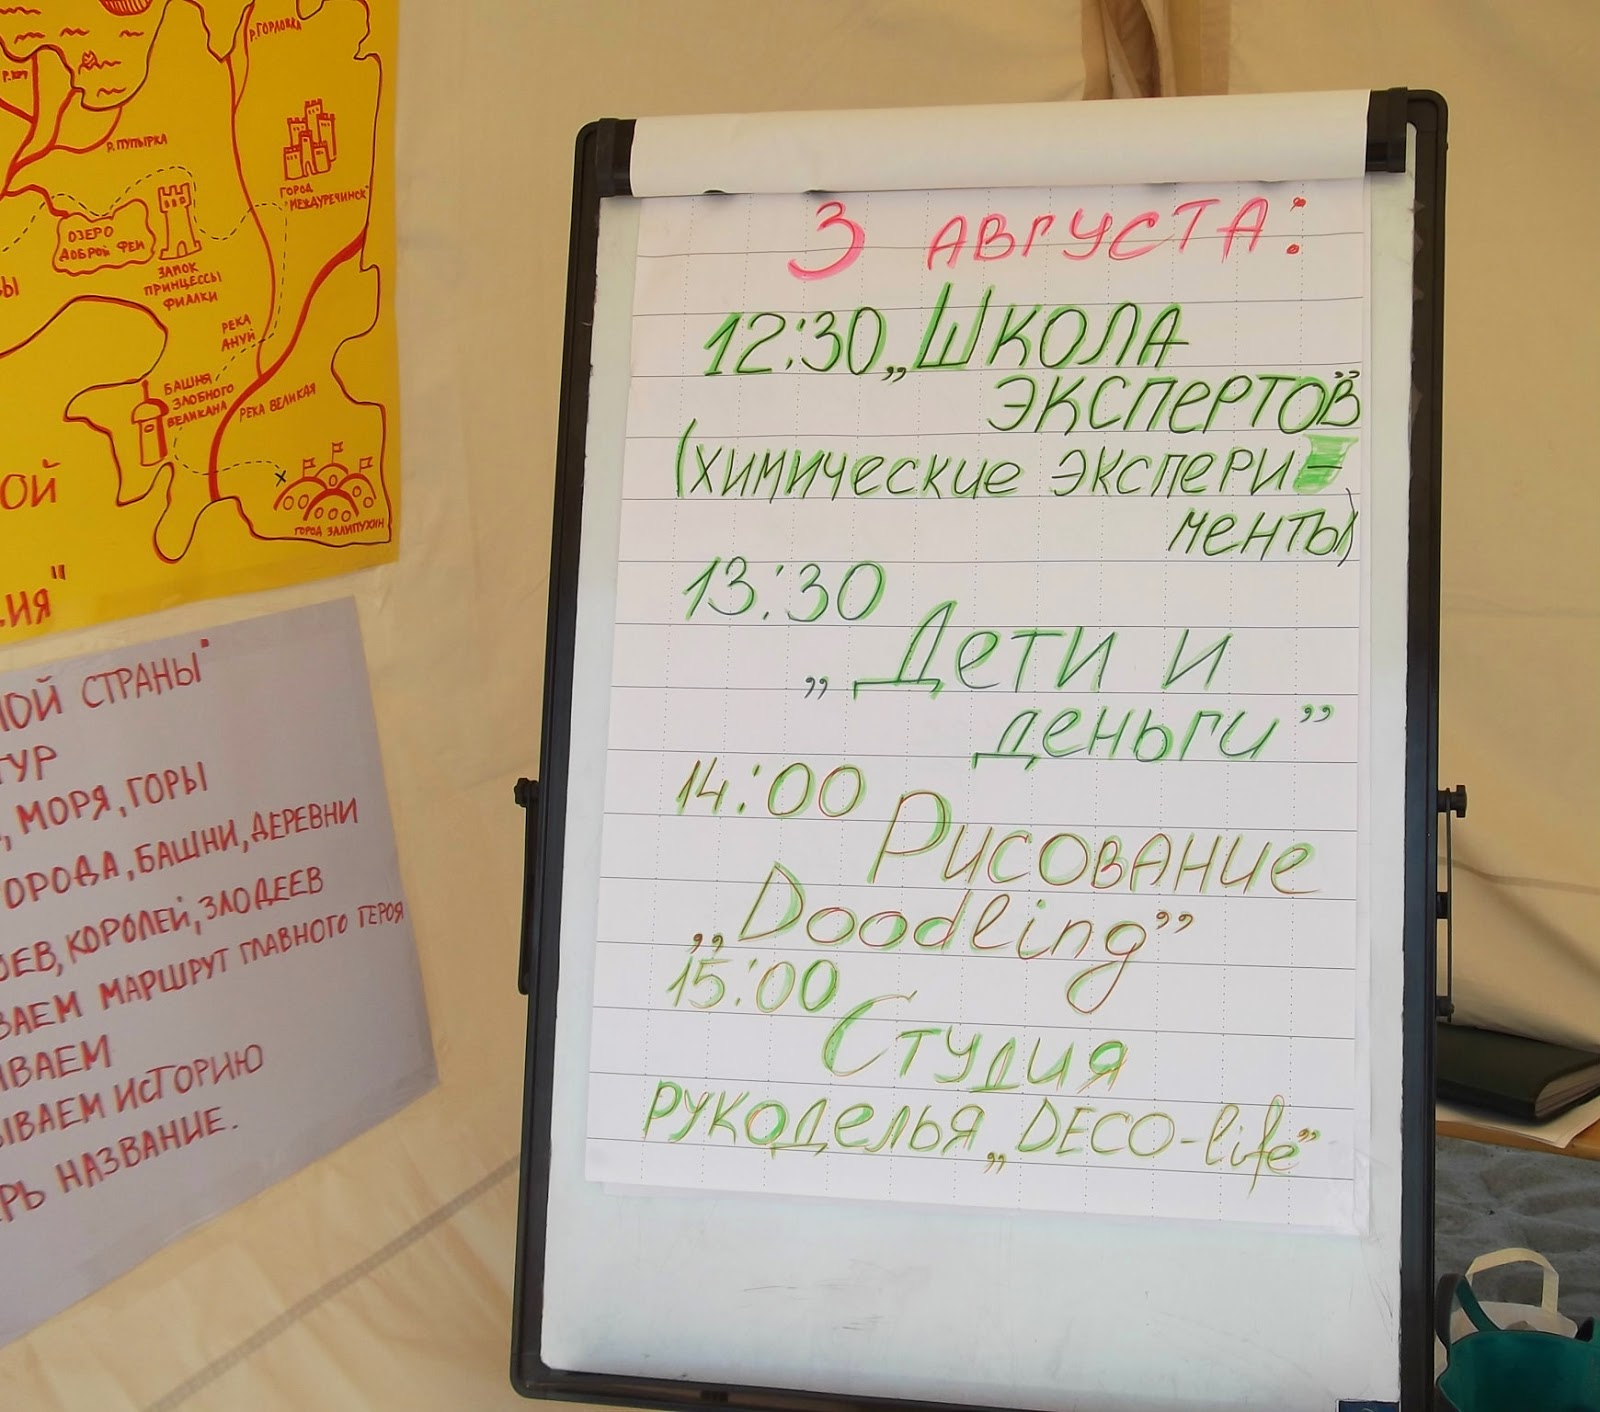 Р. ГОРЛОВКА
Р. ПУПЫРКА
ГОРОД
"МЕЖДУРЕЧИНСК"
ОЗЕРО
ДОБРОЙ ФЕИ
ЗАМОК
ПРИНЦЕССЫ
ФИАЛКИ
РЕКА
АНУЙ
БАШНЯ
ЗЛОБНОГО
ВЕЛИКАНА
РЕКА ВЕЛИКАЯ
ГОРОД ЗАЛИПУХИН
ОЙ
ИЯ"
ОЙ СТРАНЫ"
ТУР
, МОРЯ, ГОРЫ
ОРОДА, БАШНИ, ДЕРЕВНИ
ОЕВ, КОРОЛЕЙ, ЗЛОДЕЕВ
ВАЕМ МАРШРУТ ГЛАВНОГО ГЕРОЯ
ИВАЕМ
ЫВАЕМ ИСТОРИЮ
ЕРЬ НАЗВАНИЕ.
3 АВГУСТА:
12:30 „ШКОЛА
ЭКСПЕРТОВ"
(химические экспери-
менты)
13:30
„Дети и
деньги"
14:00
Рисование
„Doodling"
15:00
Студия
рукоделья „DECO-life"